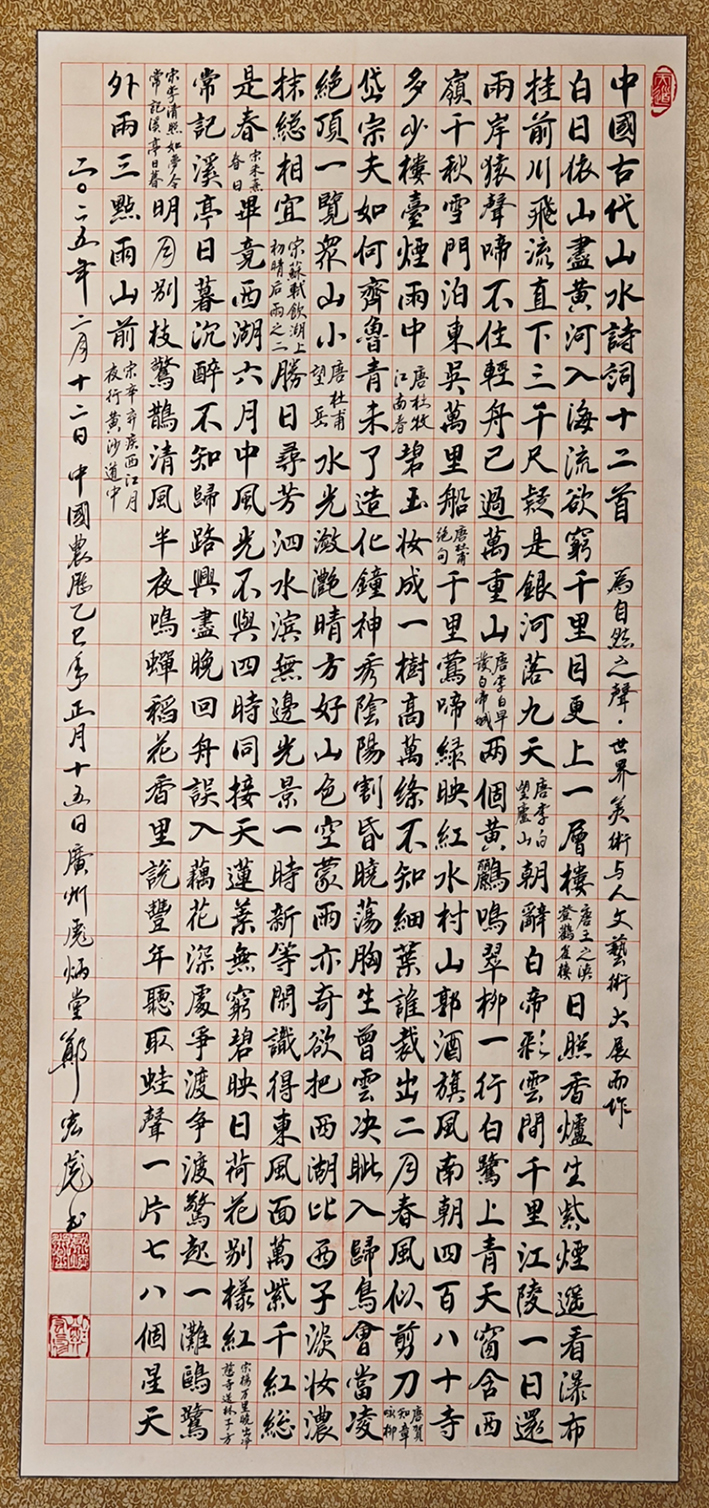 中國古代山水詩詞十二首 為自然之聲·世界美術与人文藝術大展而作
白日依山盡黃河入海流欲窮千里目更上一層樓唐王之渙登鸛雀樓日照香爐生紫煙遥看瀑布
挂前川飛流直下三千尺疑是銀河落九天唐李白望廬山朝辭白帝彩雲間千里江陵一日還
兩岸猿聲啼不住輕舟已過萬重山唐李白早發白帝城兩個黃鸝鳴翠柳一行白鷺上青天窗含西
嶺千秋雪門泊東吳萬里船唐杜甫絕句千里鶯啼緑映紅水村山郭酒旗風南朝四百八十寺
多少樓臺煙雨中唐杜牧江南春碧玉妝成一樹高萬絛不知細葉誰裁出二月春風似剪刀唐賀知章咏柳
岱宗夫如何齊魯青未了造化鐘神秀陰陽割昏曉蕩胸生曾雲決眦入歸鳥會當凌
絕頂一覽眾山小唐杜甫望岳水光瀲灩晴方好山色空蒙雨亦奇欲把西湖比西子淡妝濃
抹総相宜宋蘇軾飲湖上初晴后雨之二勝日尋芳泗水濱無邊光景一時新等閑識得東風面萬紫千紅総
是春宋朱熹春日畢竟西湖六月中風光不與四時同接天蓮葉無窮碧映日荷花别樣紅宋楊万里曉出净慈寺送林子方
常記溪亭日暮沉醉不知歸路興盡晚回舟誤入藕花深處爭渡爭渡驚起一灘鷗鷺
宋李清照如夢令常記溪亭日暮明月别枝驚鵲清風半夜鳴蟬稻花香里說豐年聽取蛙聲一片七八個星天
外兩三點雨山前宋辛弃疾西江月夜行黃沙道中
二〇二五年二月十二日中國農歷乙巳年正月十五日廣州彪炳堂鄭宏彪书